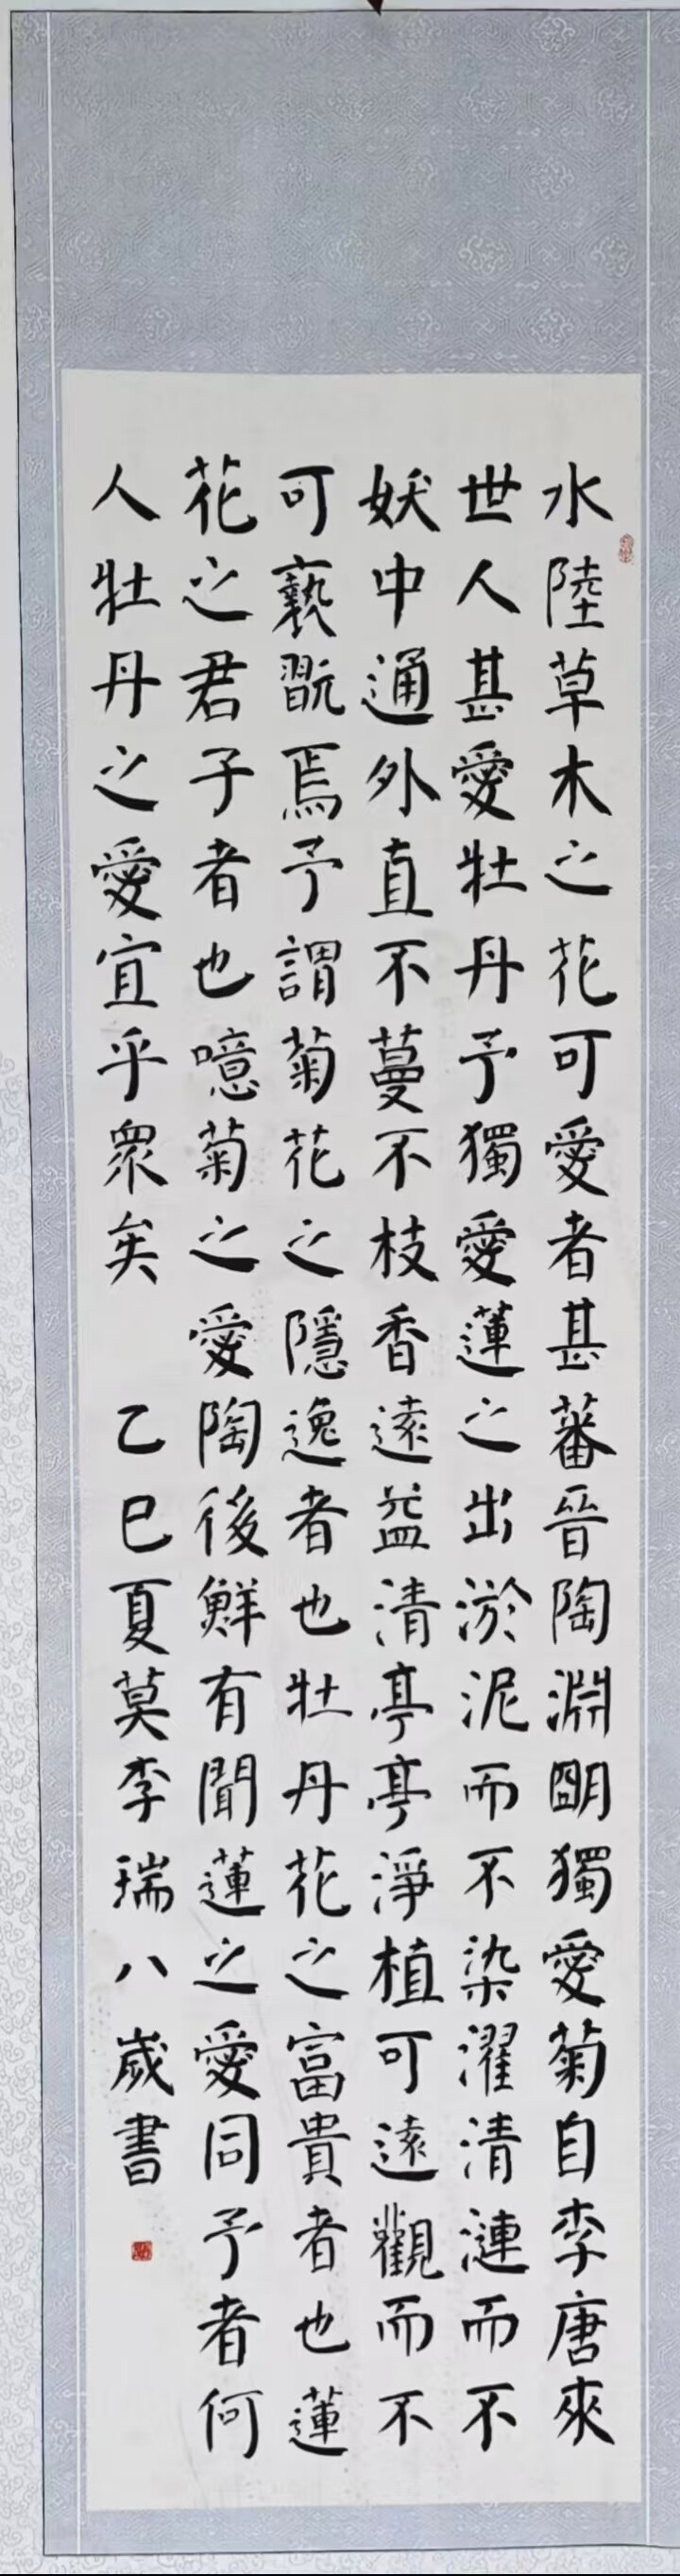 水陸草木之花可愛者甚蕃晉陶淵明獨愛菊自李唐來
世人甚愛牡丹予獨愛蓮之出淤泥而不染濯清漣而不
妖中通外直不蔓不枝香遠益清亭亭淨植可遠觀而不
可褻翫焉予謂菊花之隱逸者也牡丹花之富貴者也蓮
花之君子者也噫菊之愛陶後鮮有聞蓮之愛同予者何
人牡丹之愛宜乎衆矣 乙巳夏莫李瑞八歲書